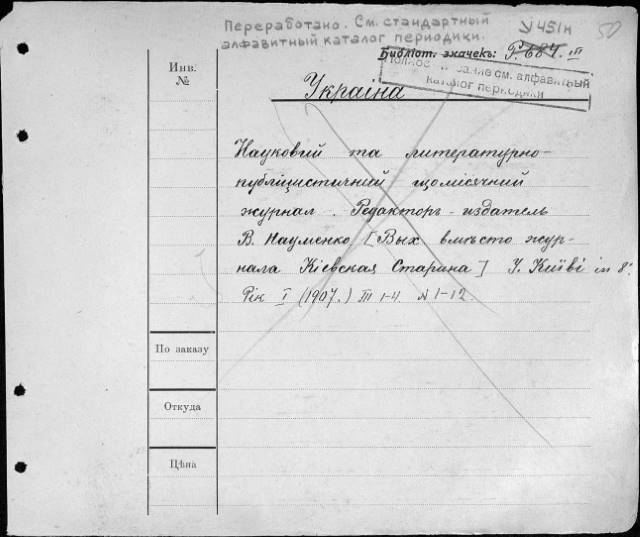 Переработано. См. стандартный
алфавитный каталог периодики.
У 451н
50
Библіот. значекъ: Р. 687. III
Полное см. алфавитный
каталог периодики
Инв.
№
Україна
Науковий та литературно-
публіцистичний щомісячний
журнал. Редакторъ-издатель
В. Науменко [Вых. вмѣсто жур-
нала Кіевская Старина] У Київі in 8°.
Рік I (1907.) III 1-4. N 1-12.
По заказу
Откуда
Цѣна